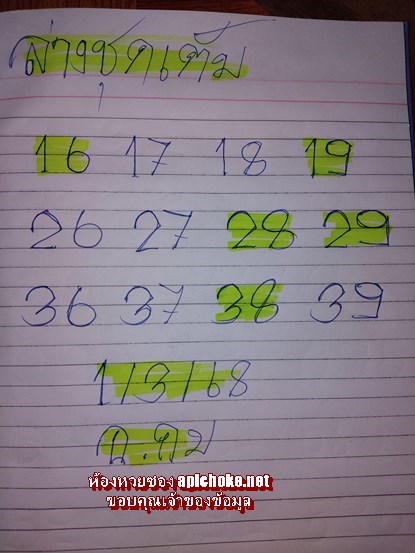 ล่างชุดเต็ม
16 17 18 19
26 27 28 29
36 37 38 39
1/3/68
ห้องหวยซอง apichoke.net
ขอบคุณเจ้าของข้อมูล